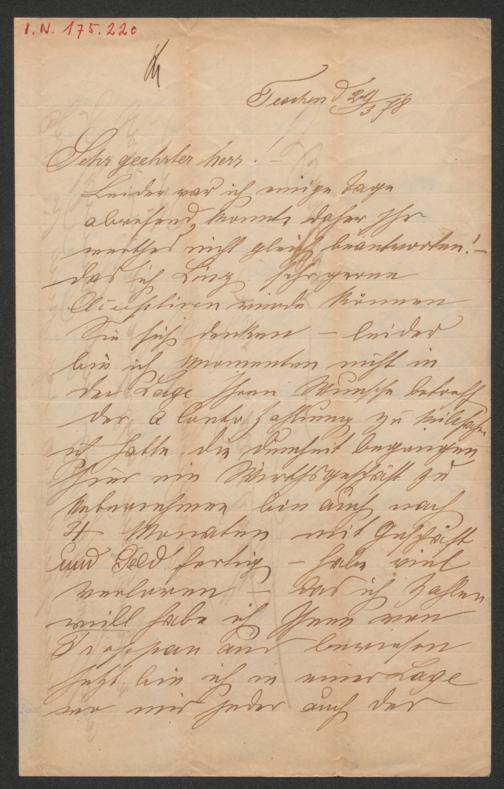 I.N. 175.220
Teschen d 29/3 78
Sehr geehrter Herr! –
Leider war ich einige Tage
abwesend, konnte daher Ihr
werthes nicht gleich beantworten! –
Das ich Linz sehr gerne
Acuiriren würde können
Sie sich denken – leider
bin ich momenten nicht in
der Lage Ihren Wunsche betreff
der a Conto Zahlung zu willfahren
ich hatte die Dumheit begangen
hier ein Wirthsgeschäft zu
uebernehmen bin auch nach
4 Monaten mit Geschäft
und Geld fertig – habe viel
verloren – das ich zahlen
will habe ich Ihnen von
Troppau aus bewiesen
jetzt bin ich in einer Lage
wo mir jeder auch der